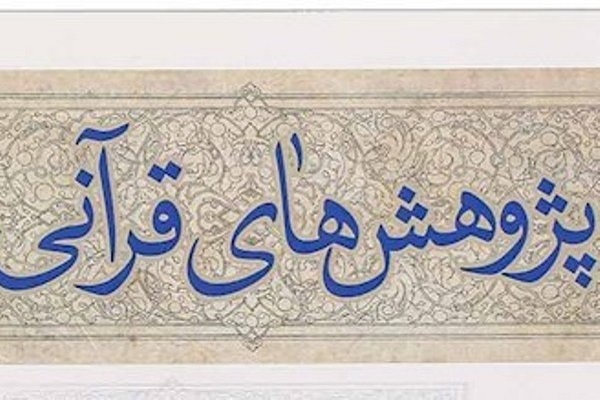 پژوهش‌های قرآنی